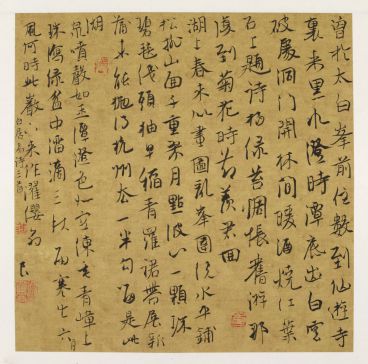 曾於太白峯前住數到仙遊寺
裏來黑水澄時潭底出白雲
破處洞門開林間暖酒燒紅葉
石上題詩掃綠苔惆悵舊遊那
復到菊花時節羨君迴
湖上春來似畫圖亂峯圍繞水平鋪
松排山面千重翠月點波心一顆珠
碧毯線頭抽早稻青羅裙帶展新
蒲未能拋得杭州去一半勾留是此
湖
泉噴聲如玉潭澄色似空練垂青嶂上
珠瀉綠盆中溜滴三秋雨寒生六月
風何時此巖下來作濯纓翁
白居易詩三首